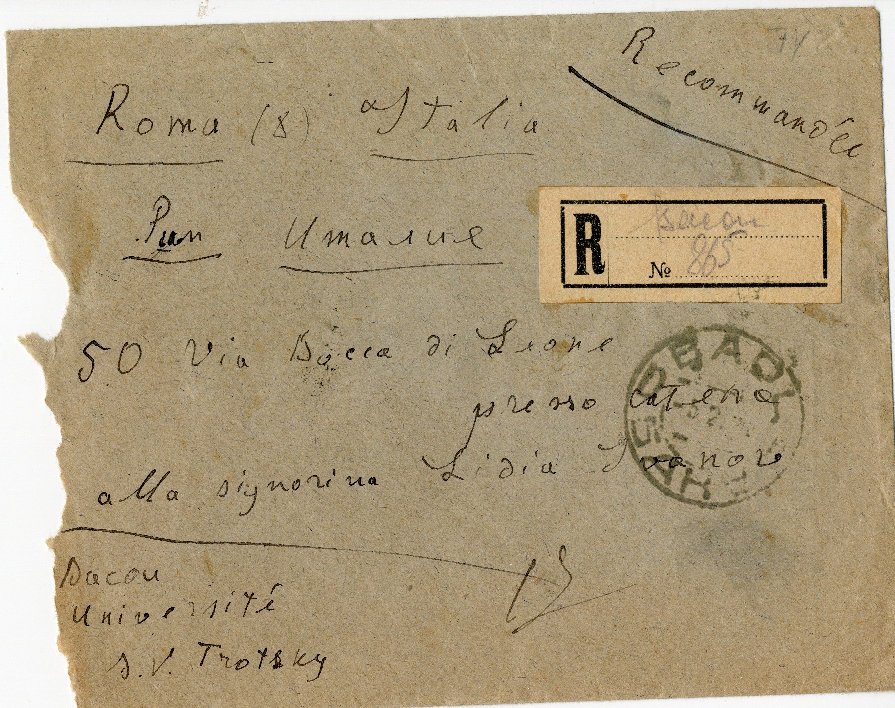 Recommandée
Roma (8) Italia
Рим Италие
R Bacou
№ 865
50 Via Bocca di Leone
presso Catena
alla signorina Lidia Ivanov
Bacou
Université
S. V. Trotsky